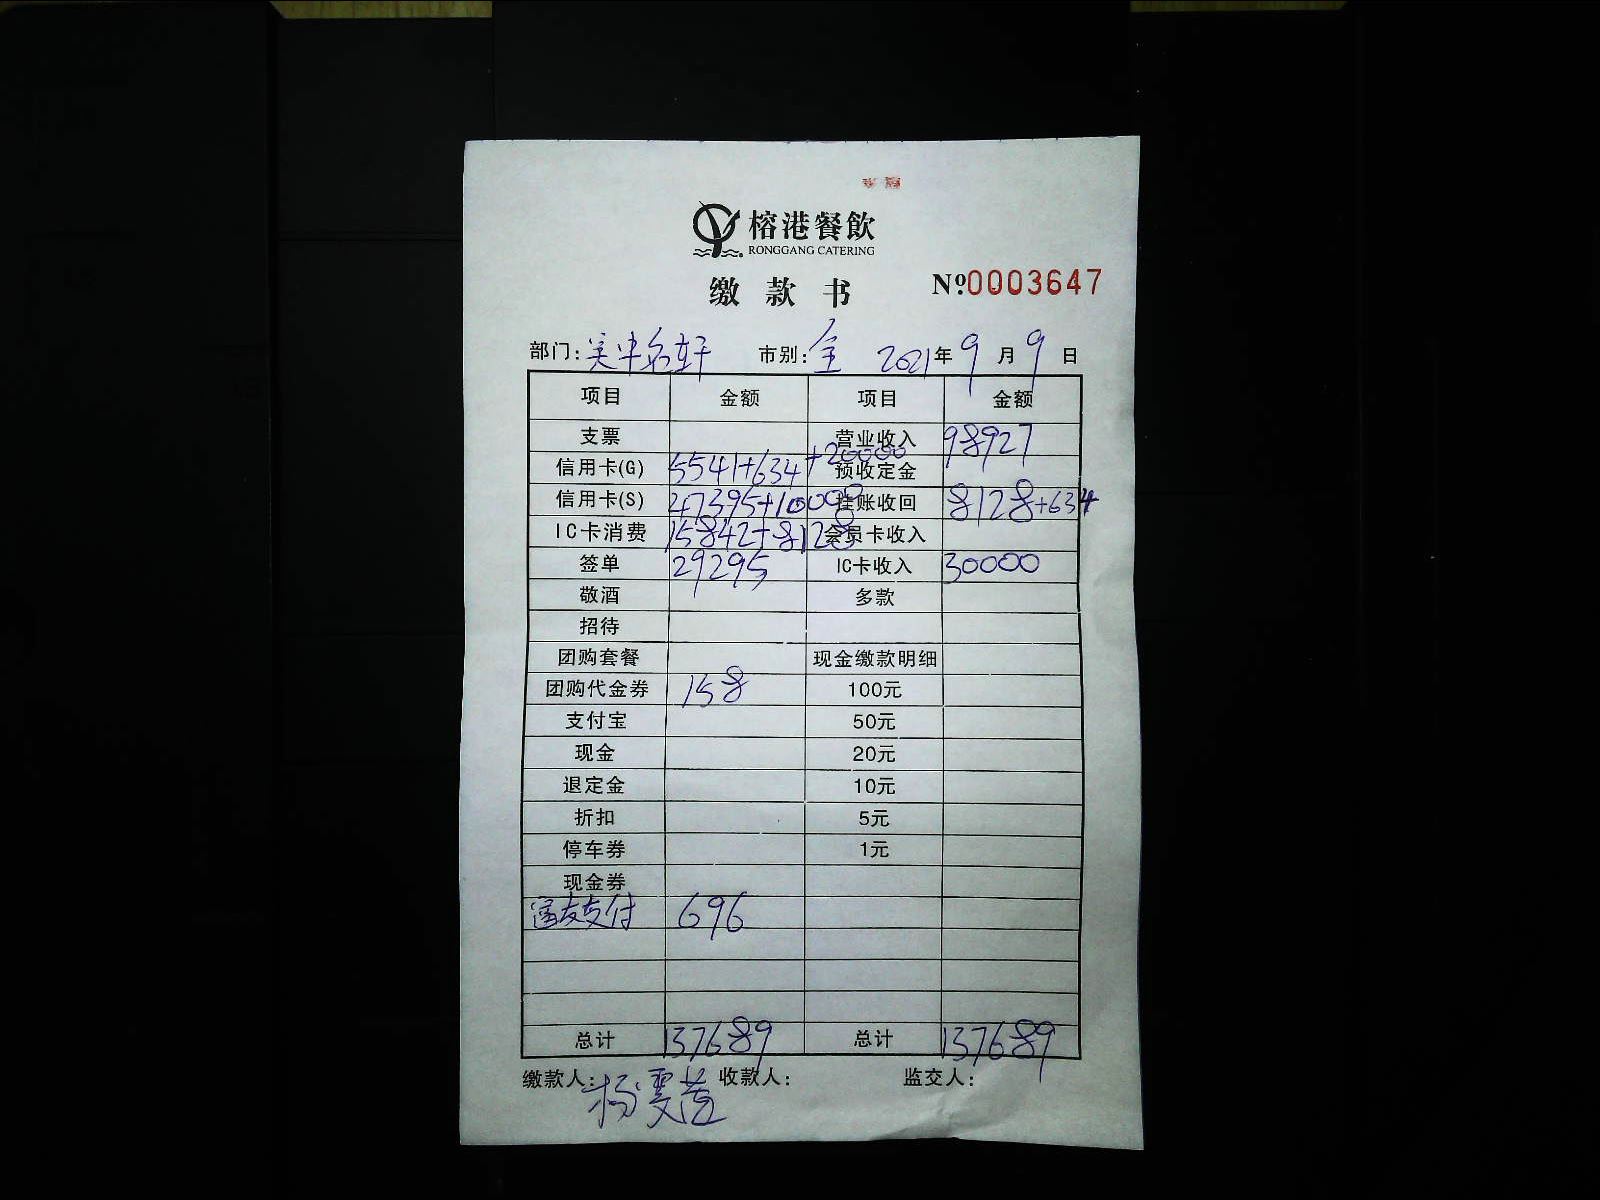 榕港餐飲
RONGGANG CATERING
缴款书
№0003647
部门: 吴中名轩 市别: 全 2021年9月9日
项目 金额 项目 金额
支票 营业收入 98927
信用卡(G) 5541+634+20000 预收定金
信用卡(S) 47395+10000 挂账收回 8128+634
IC卡消费 15842+8128 会员卡收入
签单 29295 IC卡收入 30000
敬酒 多款
招待
团购套餐 现金缴款明细
团购代金券 158 100元
支付宝 50元
现金 20元
退定金 10元
折扣 5元
停车券 1元
现金券
富友支付 696
总计 137689 总计 137689
缴款人: 杨雯 收款人: 监交人: